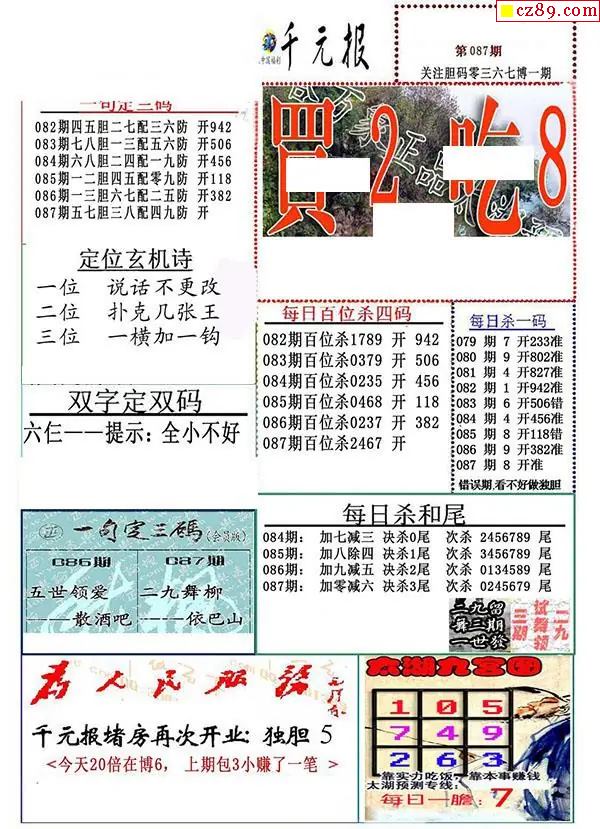 cz89.com
千元报
中国福彩
第087期
关注胆码零三六七博一期
一句定三码
082期四五胆二七配三六防 开942
083期七八胆一三配五六防 开506
084期六八胆二四配一九防 开456
085期一二胆四五配零九防 开118
086期一三胆六七配二五防 开382
087期五七胆三八配四九防 开
買2吃8
定位玄机诗
一位 说话不更改
二位 扑克几张王
三位 一横加一钩
每日百位杀四码
082期百位杀1789 开 942
083期百位杀0379 开 506
084期百位杀0235 开 456
085期百位杀0468 开 118
086期百位杀0237 开 382
087期百位杀2467 开
每日杀一码
079 期 7 开233准
080 期 9 开802准
081 期 4 开827准
082 期 1 开942准
083 期 6 开506错
084 期 4 开456准
085 期 8 开118错
086 期 9 开382准
087 期 8 开准
错误期,看不好做独胆
双字定双码
六仨——提示: 全小不好
每日杀和尾
084期: 加七减三 决杀0尾 次杀 2456789 尾
085期: 加八除四 决杀1尾 次杀 3456789 尾
086期: 加九减五 决杀2尾 次杀 0134589 尾
087期: 加零减六 决杀3尾 次杀 0245679 尾
一句定三碼(会员版)
086期 087期
五世领爱 二九舞柳
——散酒吧 ——依巴山
三九留
舞三期
一世發
二九
试舞领
三期
为人民服务
千元报堵房再次开业: 独胆 5
<今天20倍在博6, 上期包3小赚了一笔 >
太湖九宫图
1 0 5
7 4 9
2 6 3
靠实力吃饭, 靠本事赚钱
太湖预测专线:
每日一胆: 7